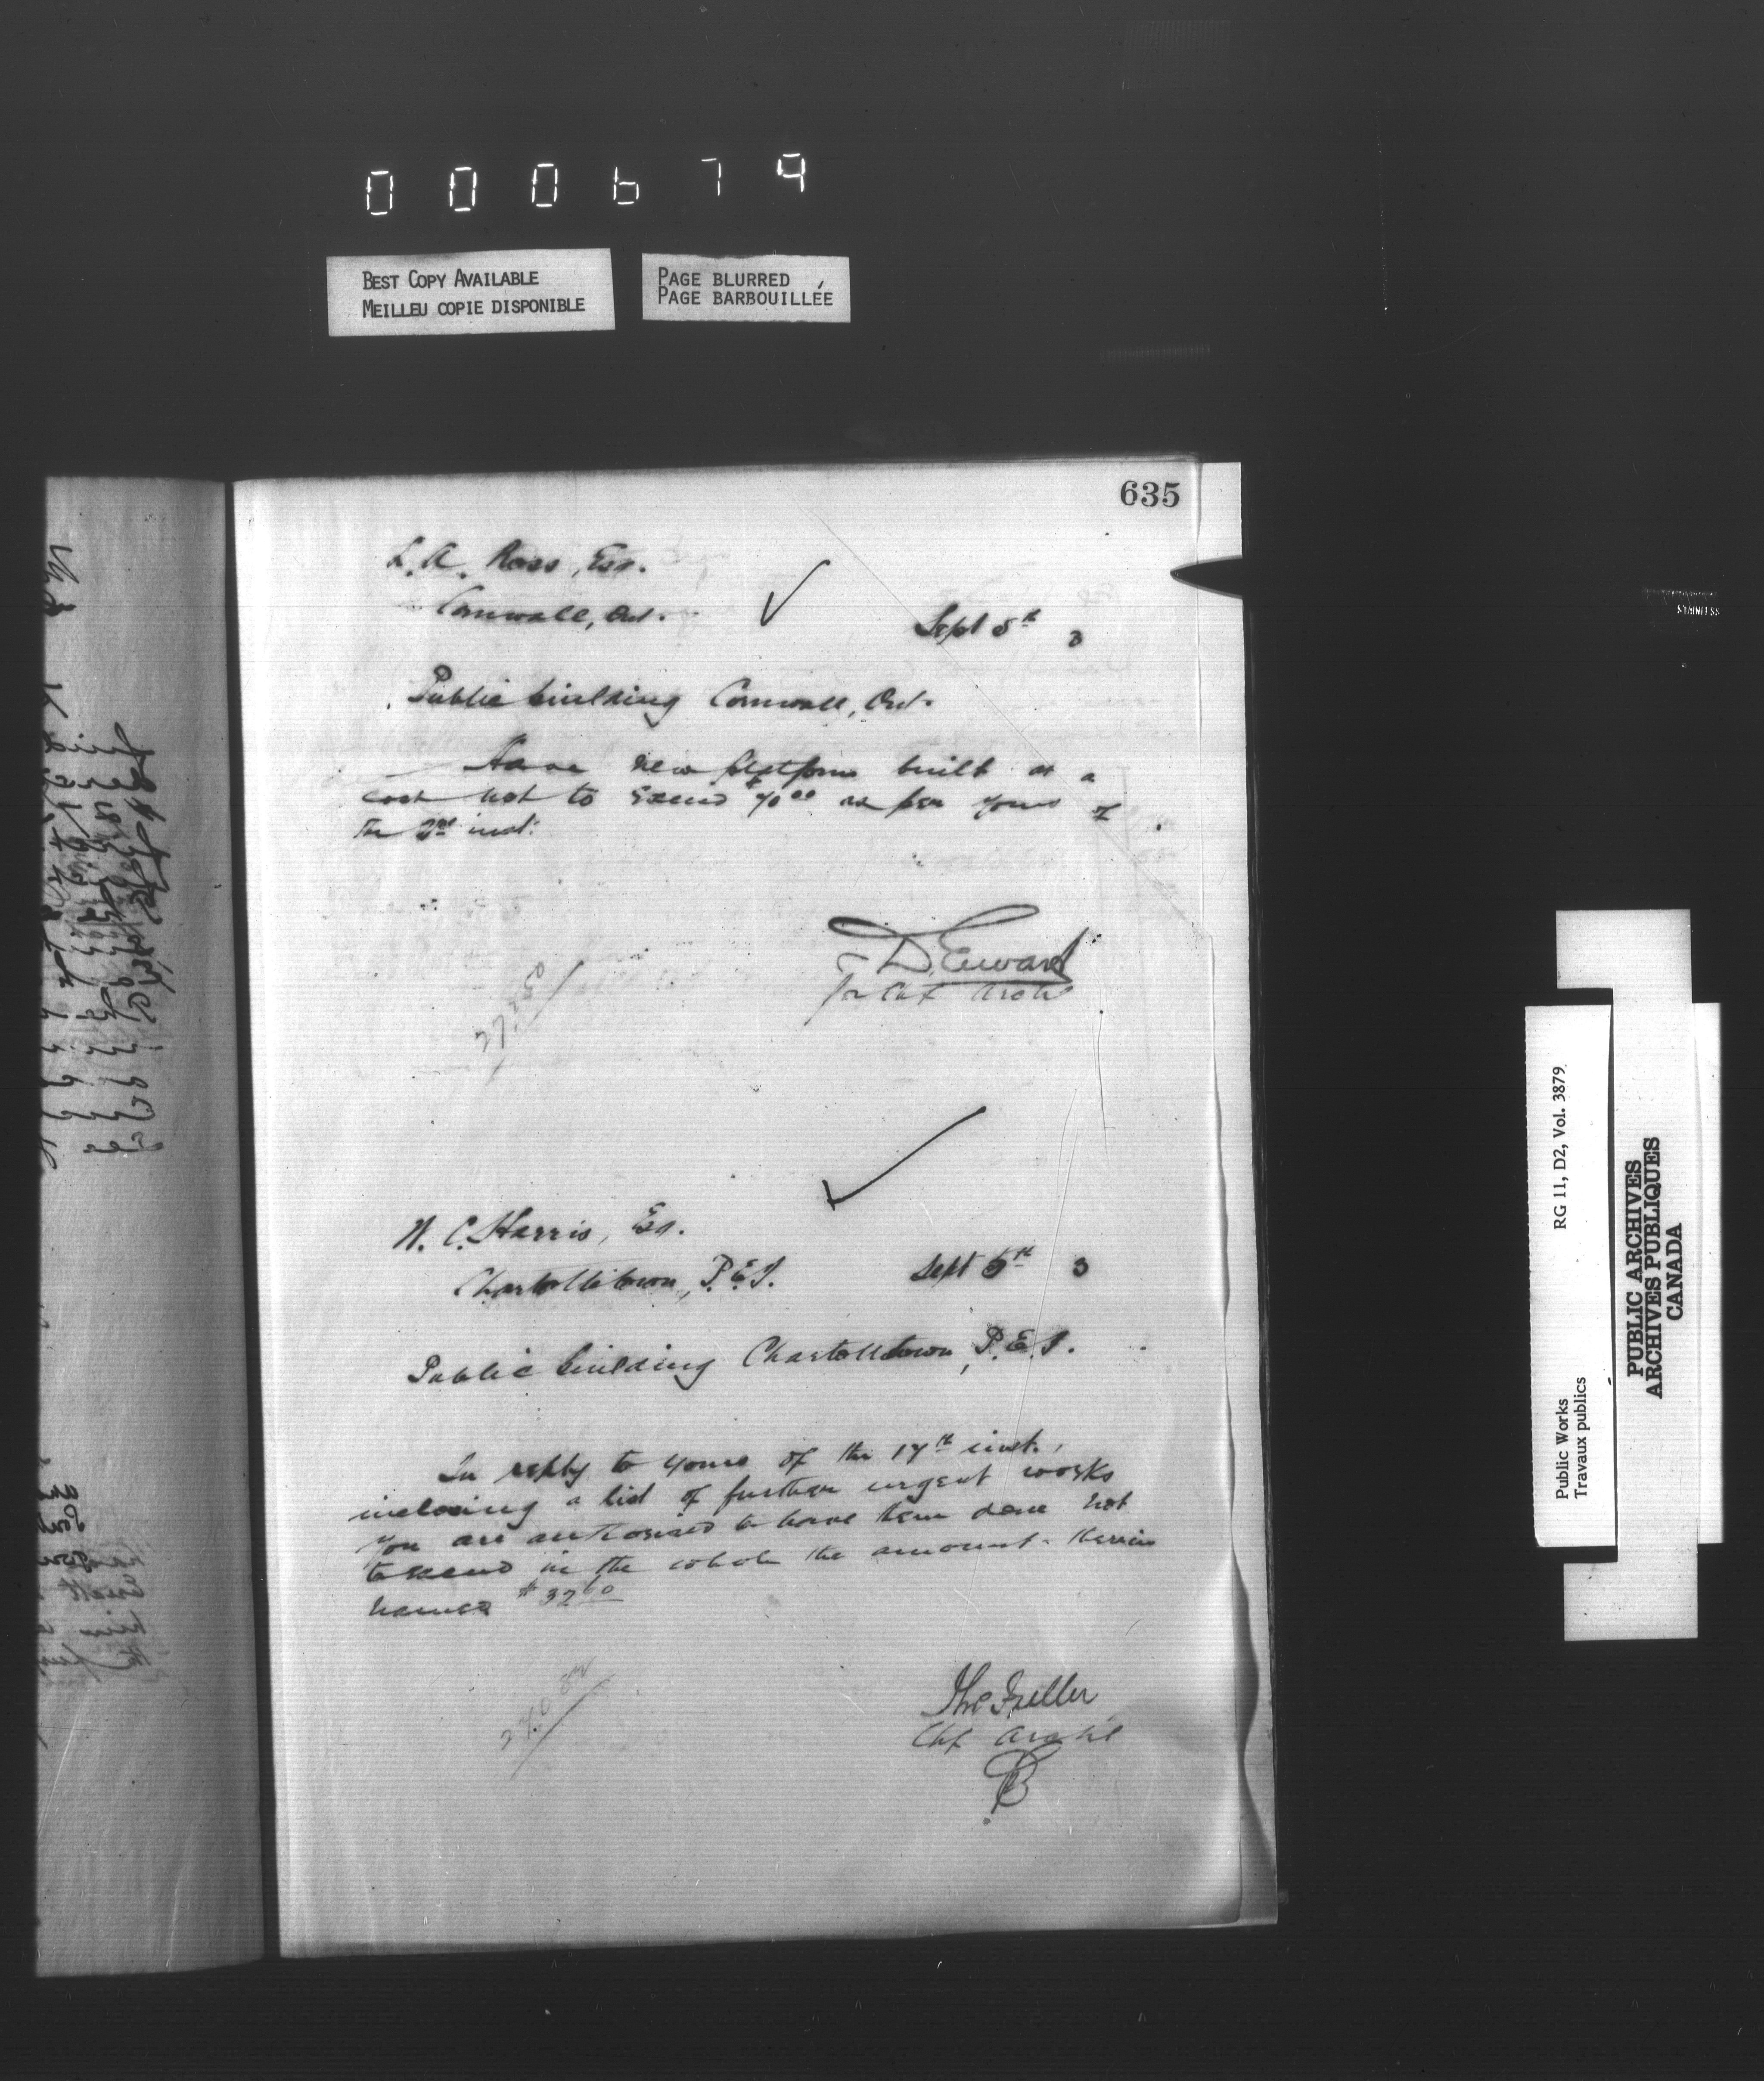 000679
BEST COPY AVAILABLE
MEILLEU COPIE DISPONIBLE
PAGE BLURRED
PAGE BARBOUILLÉE
635
L. A. Ross, Esq.
Cornwall, Ont.
Sept 5th 3
Public building Cornwall, Ont.
Have new platform built at a
cost not to exceed $70 00 as per yours of
the 2nd inst:
D. Ewart
for Chf Archt
W. C. Harris, Esq.
Charlottetown, P.E.I.
Sept 5th 3
Public building Charlottetown, P.E.I.
In reply to yours of the 17th inst.,
inclosing a list of further urgent works
you are authorised to have them done not
to exceed in the whole the amount therein
named $32 60
Thos Fuller
Chf Archt
RG 11, D2, Vol. 3879
Public Works
Travaux publics
PUBLIC ARCHIVES
ARCHIVES PUBLIQUES
CANADA